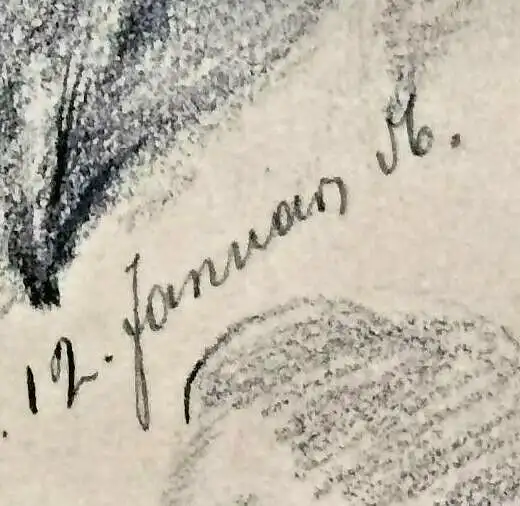 12. Januar